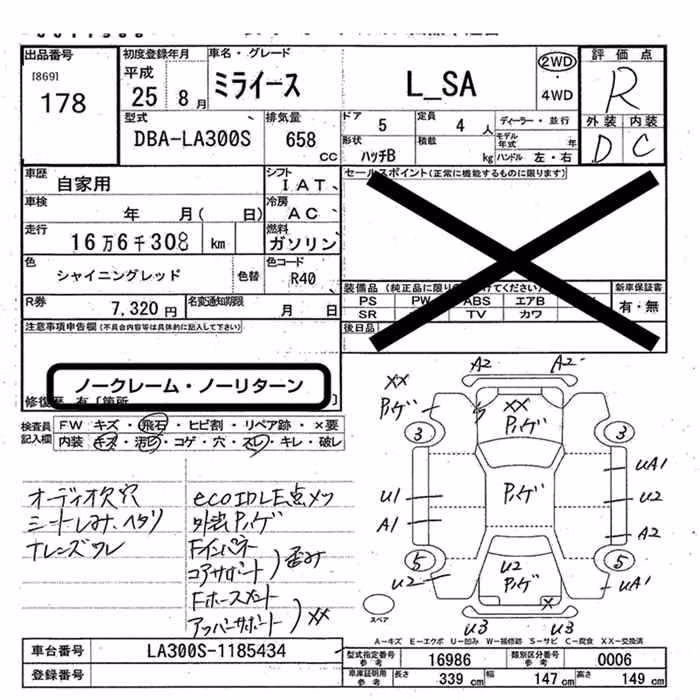 出品番号
[869]
178
初度登録年月
平成
25年 8月
車名・グレード
ミライース L_SA
2WD
4WD
評価点
R
外装 内装
D C
型式
DBA-LA300S
排気量
658 CC
ドア
5
定員
4 人
ディーラー・並行
形状
ハッチB
積載
kg
モデル年式 年
ハンドル 左・右
車歴
自家用
シフト
IAT
セールスポイント(正常に機能するものに限ります)
車検
年 月( 日)
冷房
AC
走行
16万6千308 km
燃料
ガソリン
色
シャイニングレッド
色替
色コード
R40
装備品(純正品に限り けてください)
新車保証書
有・無
PS PW ABS エアB
SR TV カワ
後日品
R券
7,320円
名変通知期限
月 日
注意事項申告欄(不具合内容等は具体的に記入して下さい)
ノークレーム・ノーリターン
修復歴 有〔箇所 〕
検査員記入欄
FW キズ・飛石・ヒビ割・リペア跡・×要
内装 キズ・汚レ・コゲ・穴・スレ・キレ・破レ
オーディオ欠穴
シートしみ、ヘタリ
ナレンズワレ
eco IDLE点メツ
外装Pハゲ
Fインパネ
コアサポート 歪み
Fホースメント
アッパーサポート XX
A2 A2
XX
Pハゲ
XX
Pハゲ
3 3
UA1
U1
Pハゲ
U2
A1
A2
5 5
U2
U2
Pハゲ
UA1
X
U3 U3
スペア
A-キズ E-エクボ U-凹み W-補修跡 S-サビ C-腐食 XX-交換済
車台番号
LA300S-1185434
登録番号
型式指定番号
参考
16986
類別区分番号
参考
0006
車庫証明用
参考
長さ
339 cm
幅
147 cm
高さ
149 cm